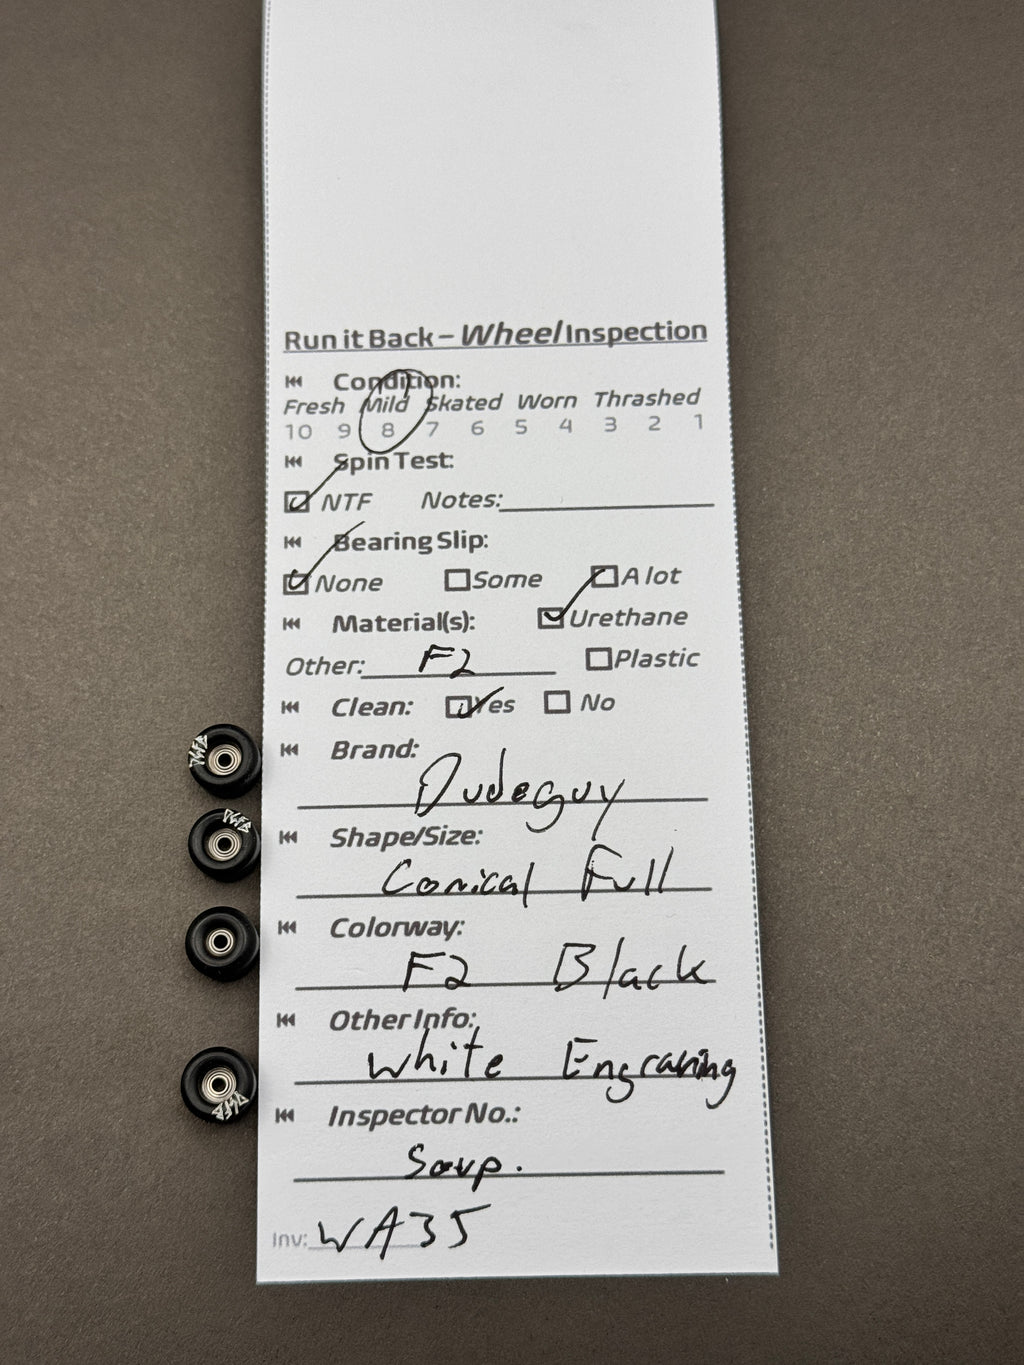 Run it Back – Wheel Inspection
Condition:
Fresh Mild Skated Worn Thrashed
10 9 8 7 6 5 4 3 2 1
Spin Test:
NTF Notes:
Bearing Slip:
None Some A lot
Material(s): Urethane
Other: F2 Plastic
Clean: Yes No
Brand:
Dudeguy
Shape/Size:
Conical Full
Colorway:
F2 Black
Other Info:
White Engraving
Inspector No.:
Soup.
Inv: WA35